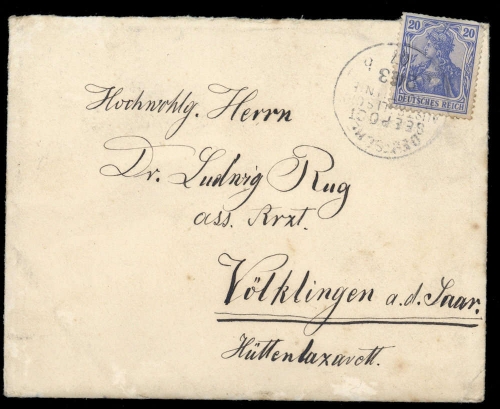 20 20
DEUTSCHES REICH
DEUTSCHE
SEEPOST
Hochwohlg. Herrn
Dr. Ludwig Rug
ass. Arzt.
Völklingen a.d. Saar.
Hüttenlazarett.